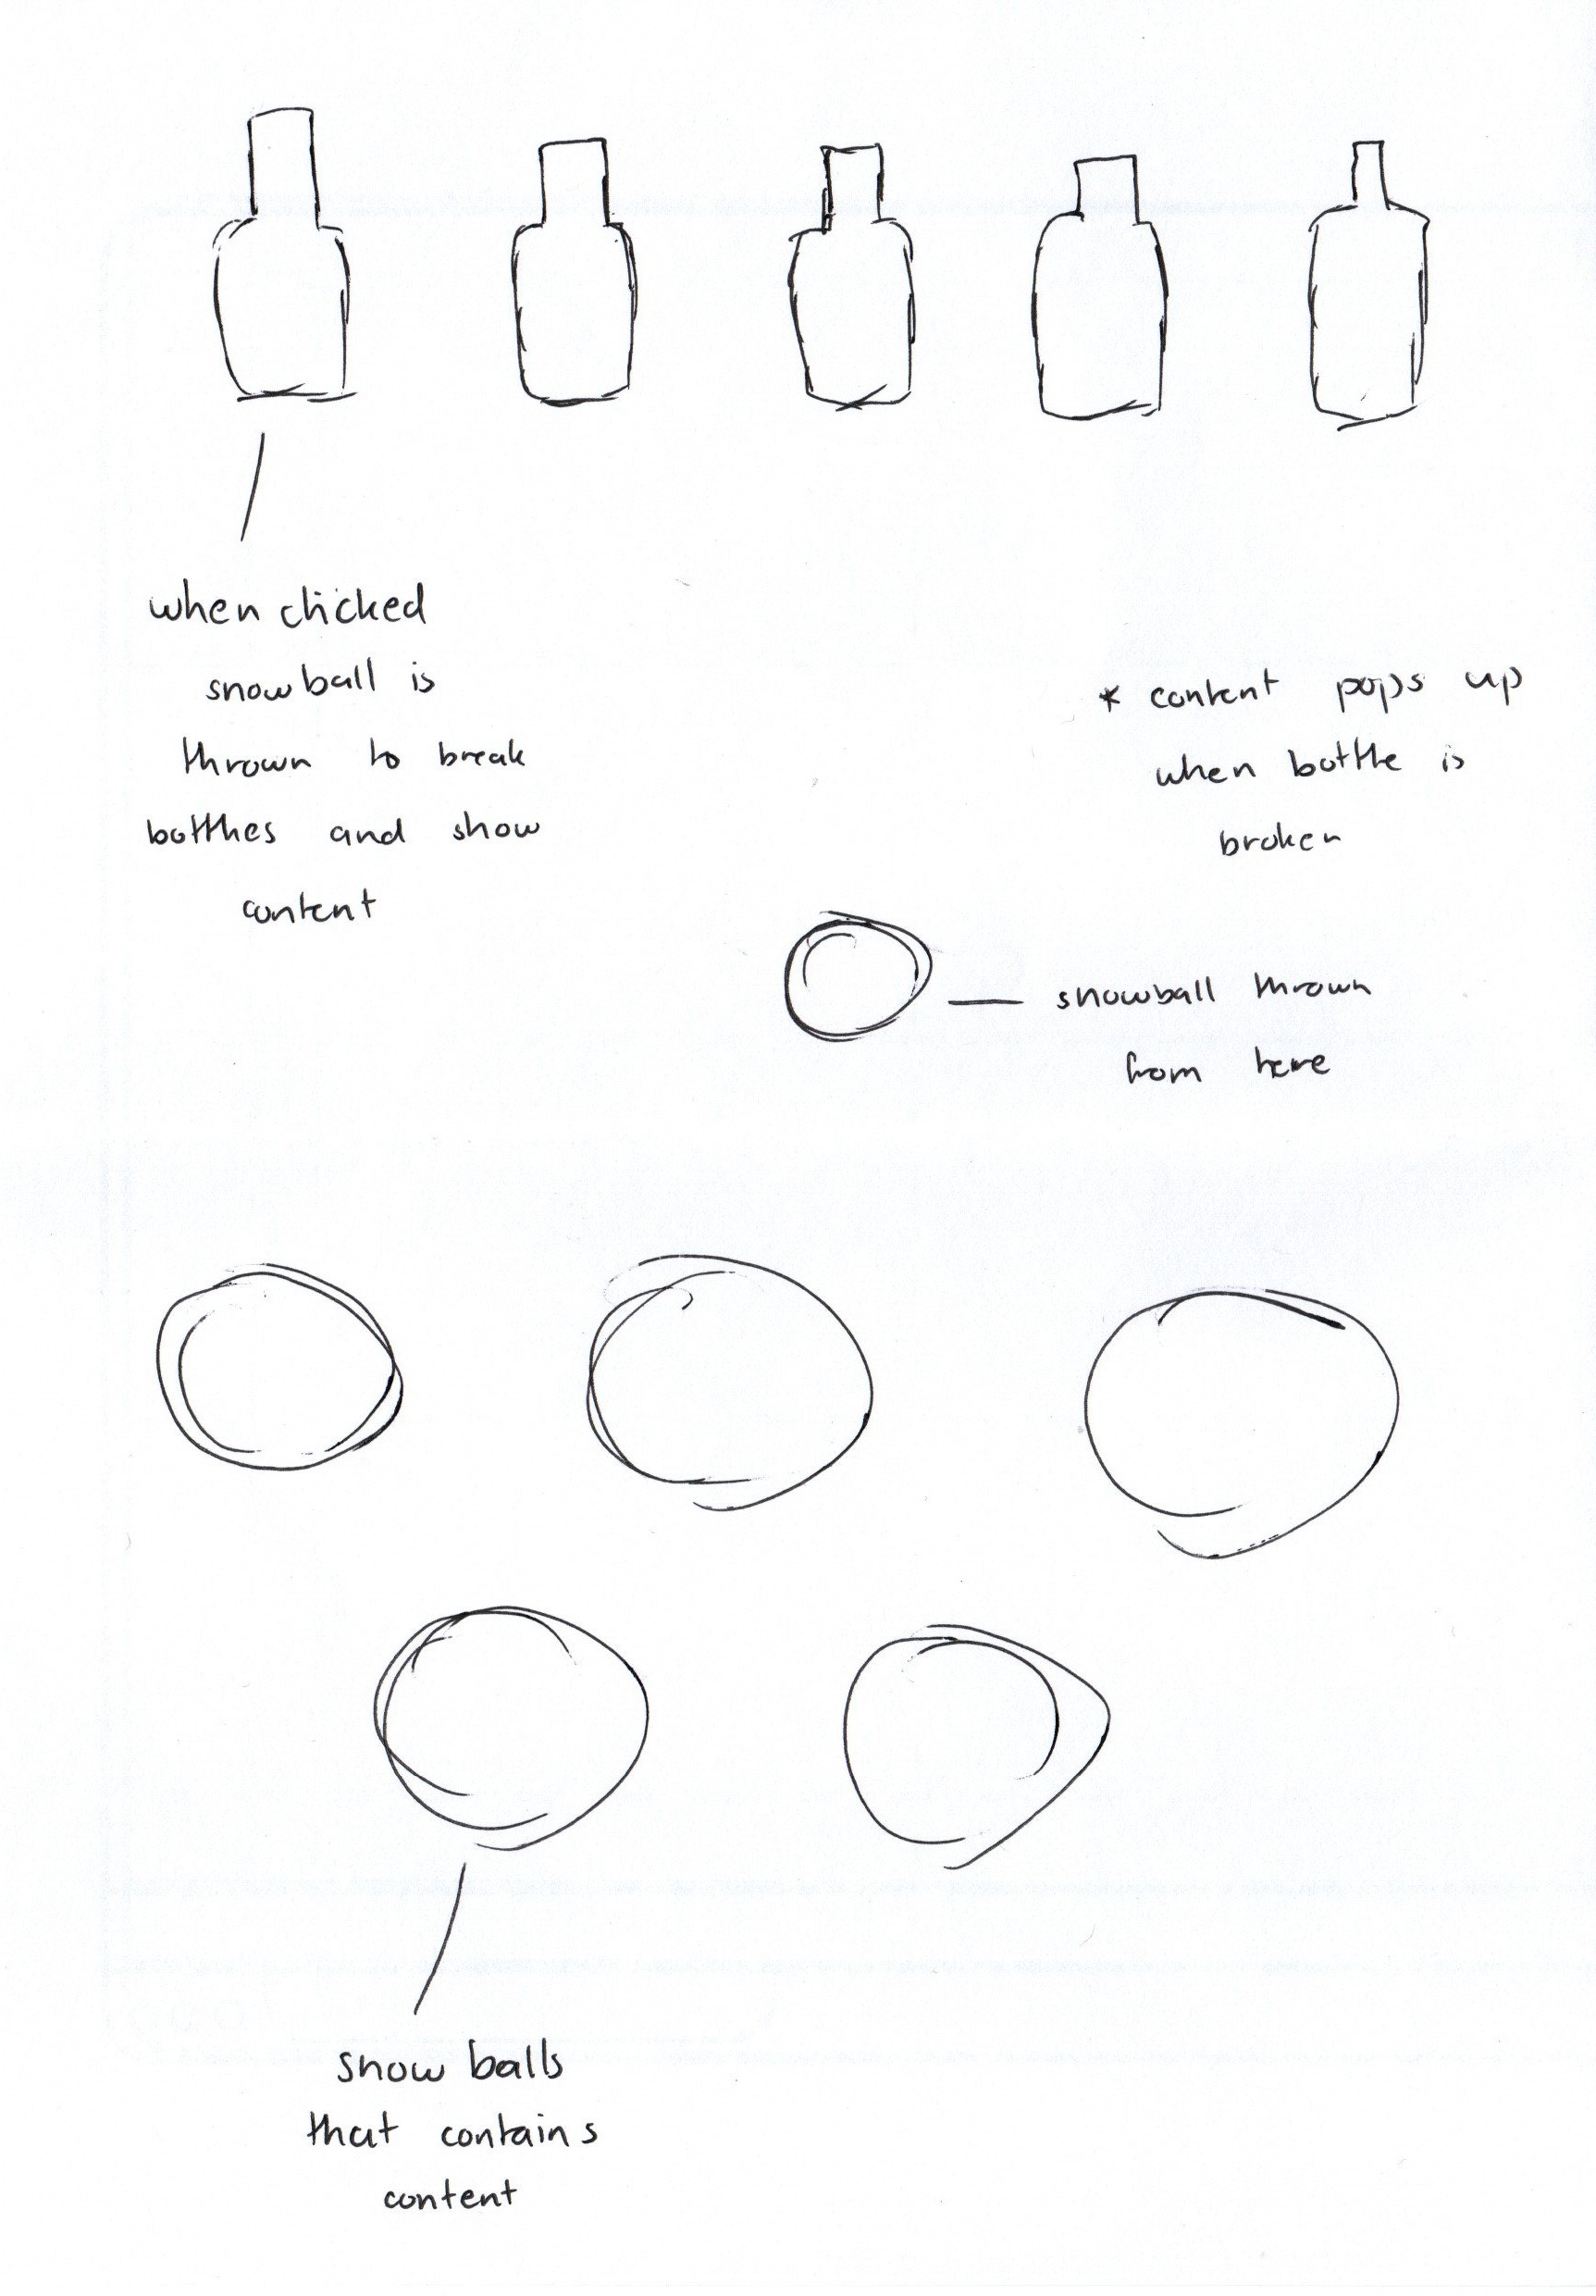 when clicked
snowball is
thrown to break
botthes and show
content
* content pops up
when bottle is
broken
snowball thrown
from here
snow balls
that contains
content